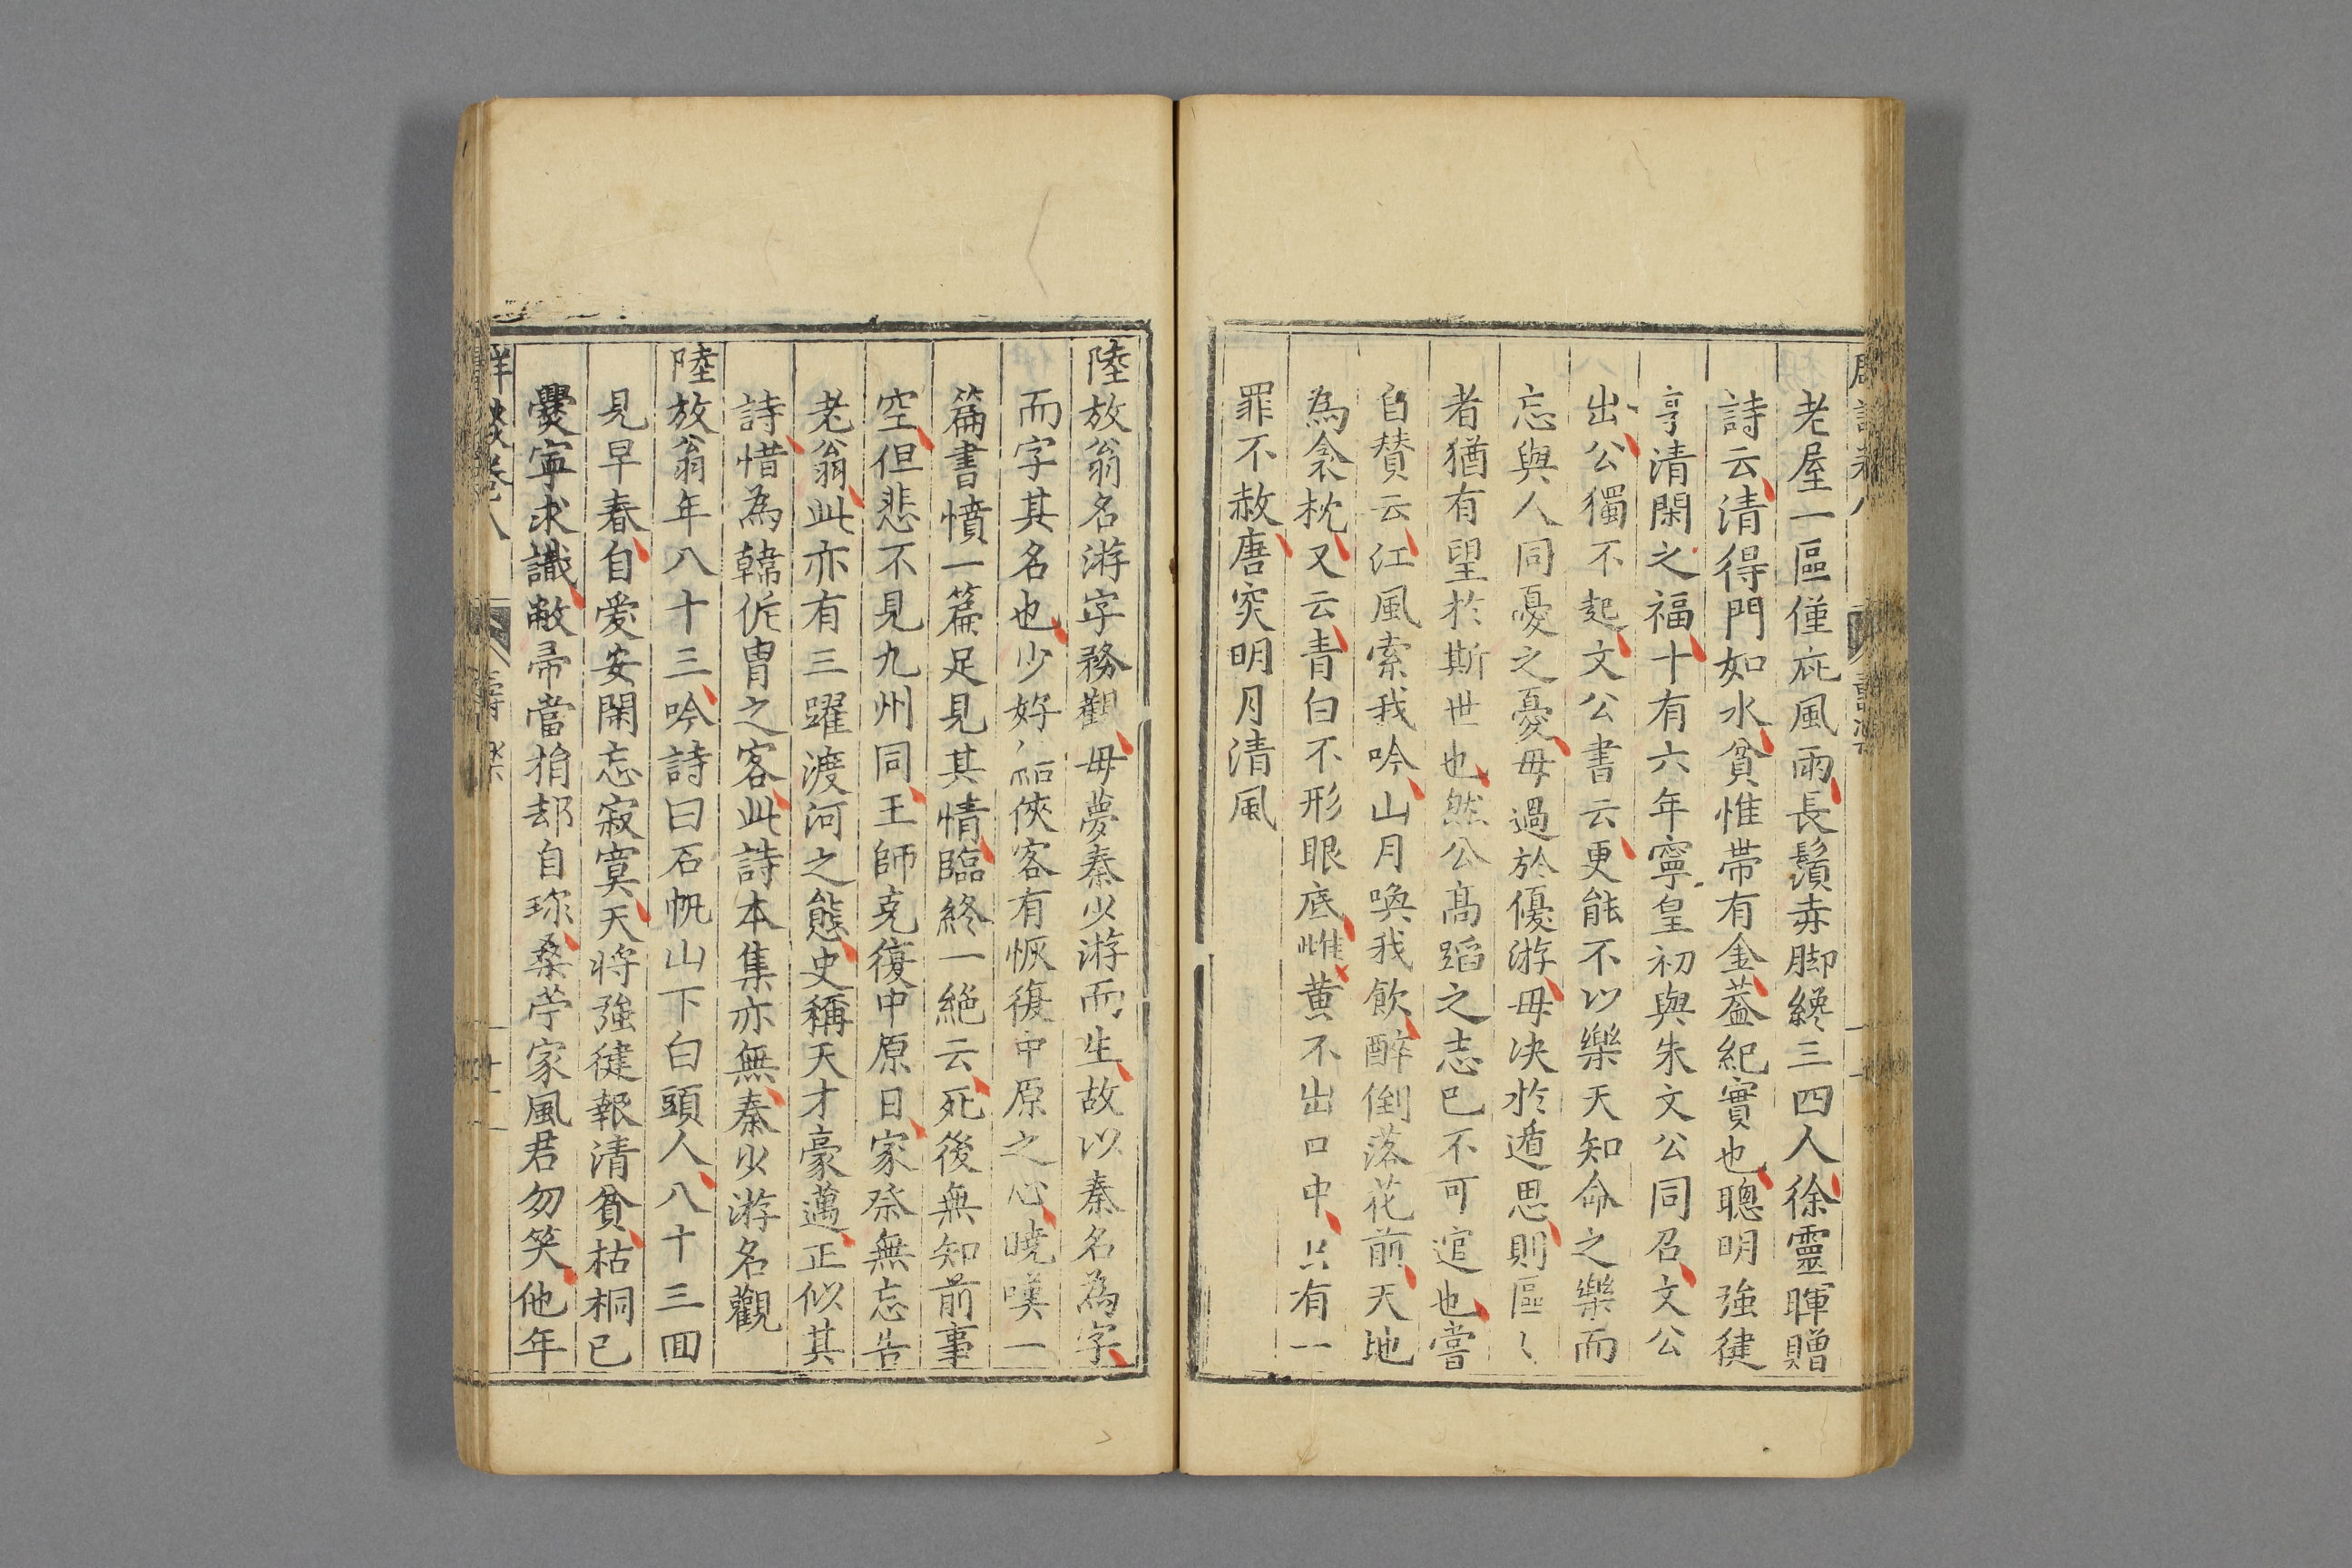 老屋一區僅庇風雨長鬚赤脚纔三四人徐靈暉贈
詩云清得門如水貧惟帶有金蓋紀實也聰明強健
亨清閑之福十有六年寧皇初與朱文公同召文公
出公獨不起文公書云更能不以樂天知命之樂而
忘與人同憂之憂毋過於優游毋决於遁思則區〻
者猶有望於斯世也然公高蹈之志已不可逭也嘗
自賛云江風索我吟山月喚我飲醉倒落花前天地
為衾枕又云青白不形眼底雌黃不出口中只有一
罪不赦唐突明月清風
陸放翁名游字務觀毋夢秦少游而生故以秦名為字
而字其名也少好俠客有恢復中原之心曉嘆一
篇書憤一篇足見其情臨終一絕云死後無知前事
空但悲不見九州同王師克復中原日家祭無忘告
老翁此亦有三躍渡河之態史稱天才豪邁正似其
詩惜為韓侂冑之客此詩本集亦無秦少游名觀
陸放翁年八十三吟詩曰石帆山下白頭人八十三回
見早春自愛安閑忘寂寞天將強健報清貧枯桐已
爨寧求識敝帚當捐却自珎桑苧家風君勿笑他年